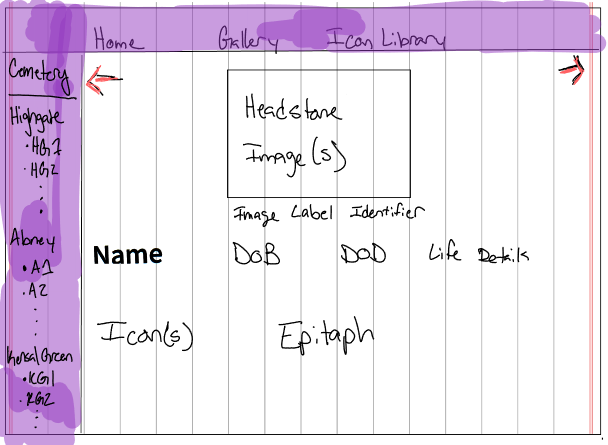 Home Gallery Icon Library
Cemetery
Highgate
• HG1
• HG2
Abney
• A1
• A2
Kensal Green
• KG1
• KG2
Headstone
Image(s)
Image Label Identifier
Name DoB DoD Life Details
Icon(s) Epitaph